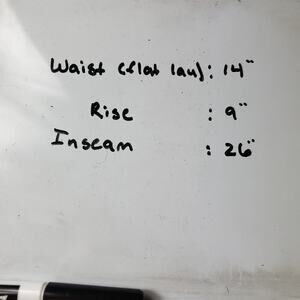 Waist (flat lau): 14"
Rise : 9"
Inseam : 26"